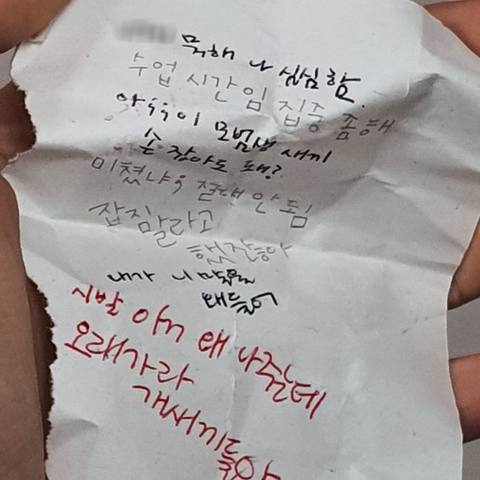 뭐해 나 심심함.
수업 시간임 집중 좀해
아ㅡㅡ이 모범생 새끼
손 잡아도 돼?
미쳤냐; 절대 안 됨
잡지말라고
했잖아
내가 니 말을
왜들어
시발 아까 왜 나줬는데
오래가라
개새끼들아